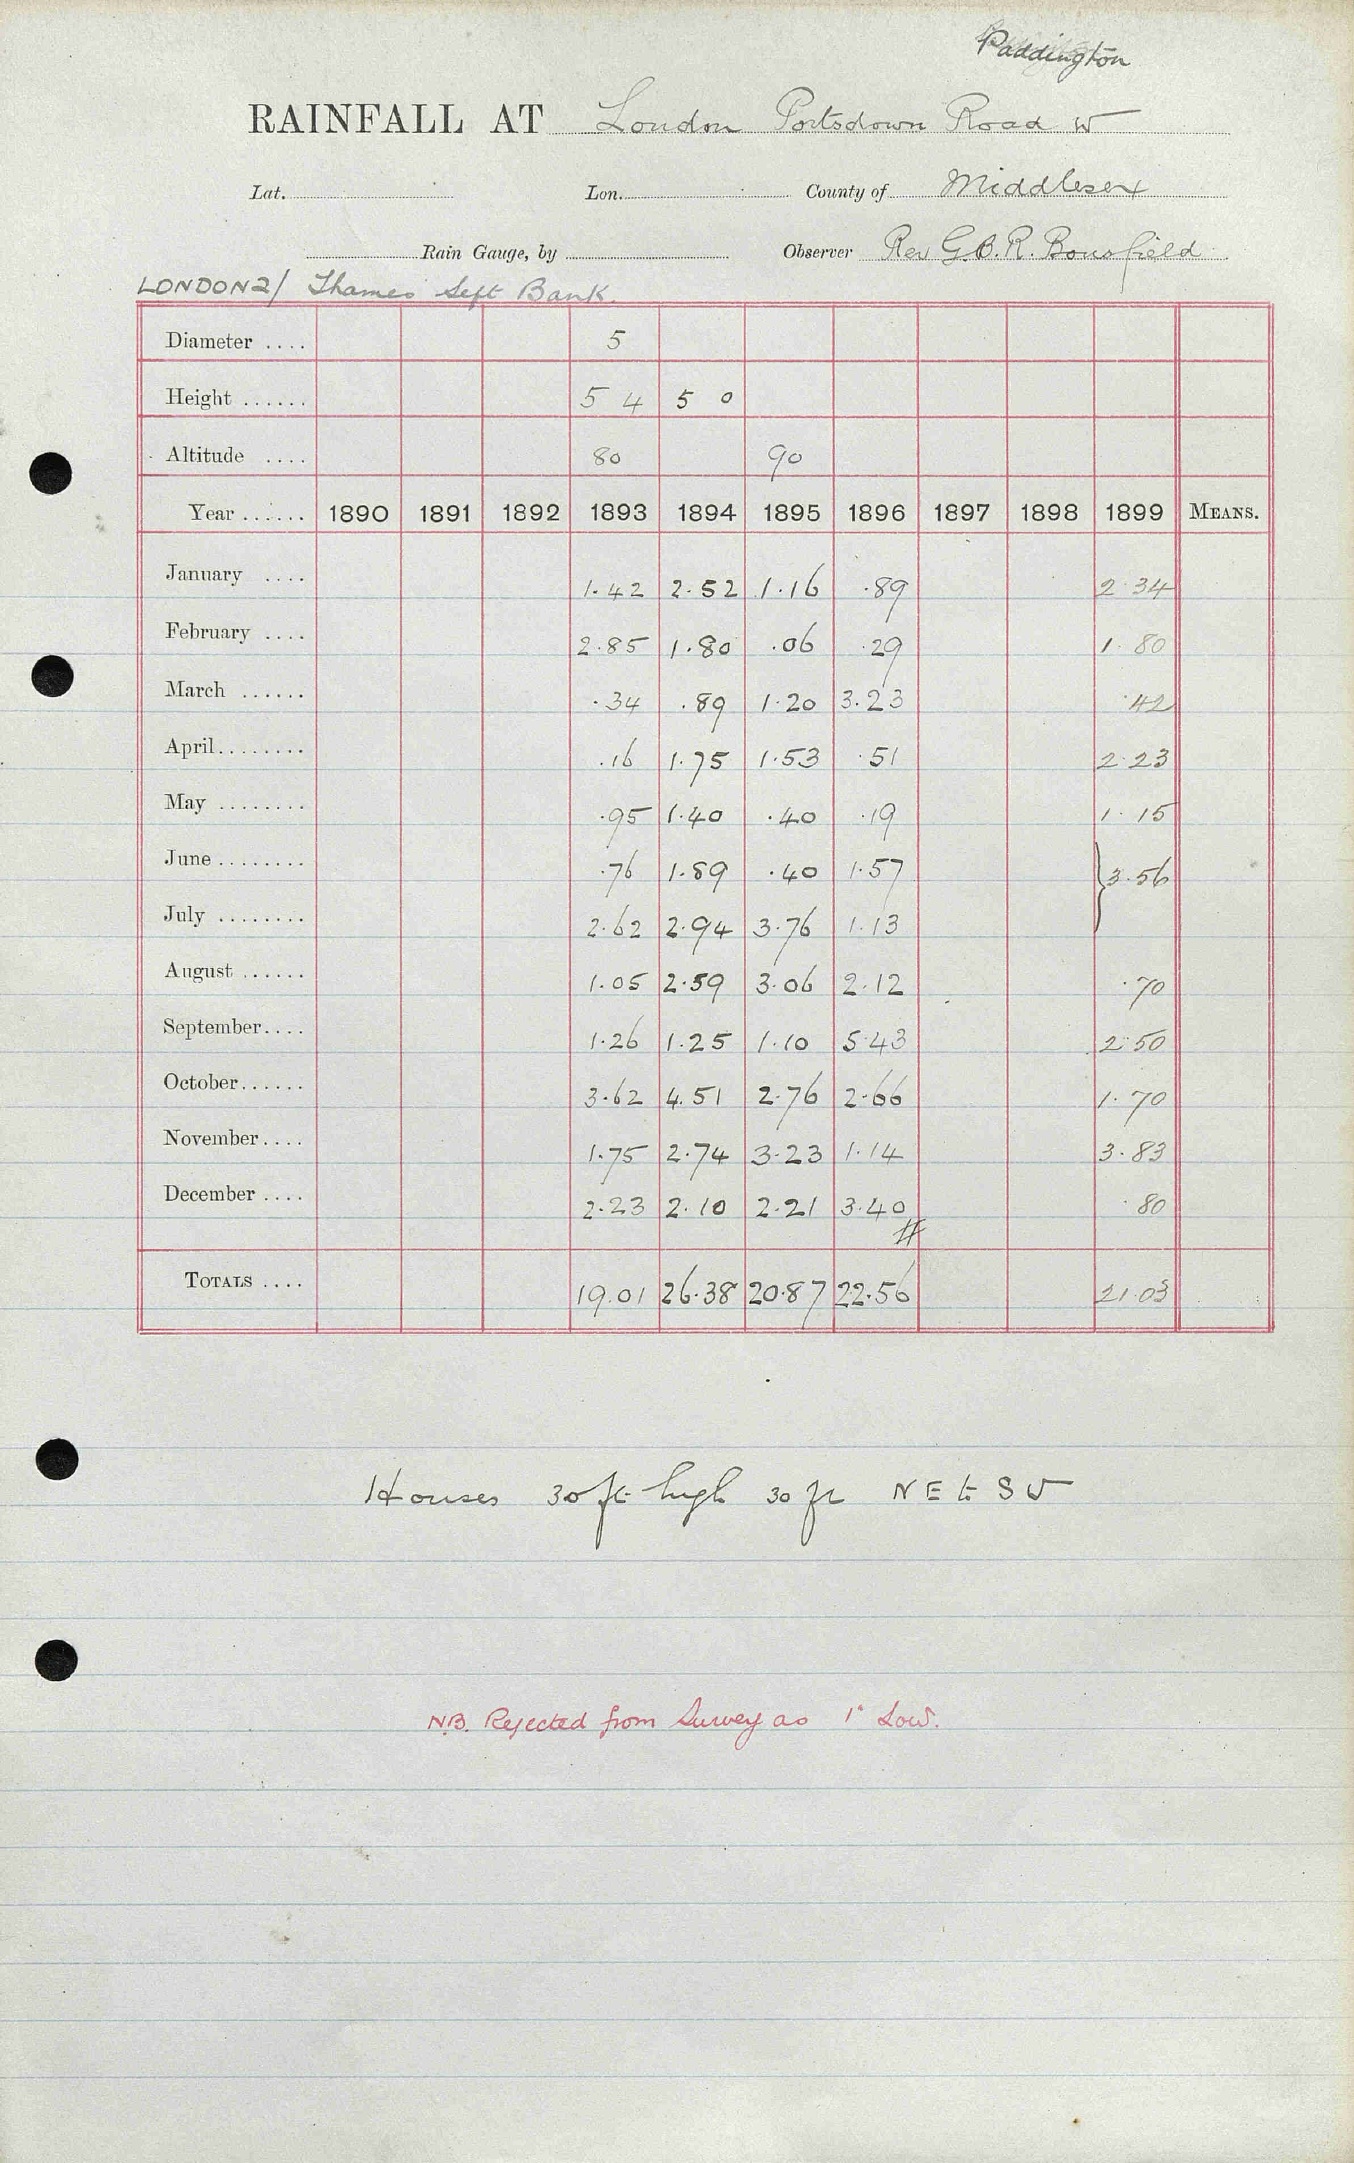 Paddington
RAINFALL AT London Portsdown Road W
Lat. Lon. County of Middlesex
Rain Gauge, by Observer Rev G.B.R. Bousfield
LONDON 2/ Thames Left Bank.
Diameter .... 5
Height ...... 5 4 5 0
Altitude .... 80 90
Year ...... 1890 1891 1892 1893 1894 1895 1896 1897 1898 1899 MEANS.
January .... 1.42 2.52 1.16 .89 2.34
February .... 2.85 1.80 .06 .29 1.80
March ...... .34 .89 1.20 3.23 .42
April ........ .16 1.75 1.53 .51 2.23
May ........ .95 1.40 .40 .19 1.15
June ........ .76 1.89 .40 1.57 } 3.56
July ........ 2.62 2.94 3.76 1.13
August ...... 1.05 2.59 3.06 2.12 .70
September .... 1.26 1.25 1.10 5.43 2.50
October ...... 3.62 4.51 2.76 2.66 1.70
November .... 1.75 2.74 3.23 1.14 3.83
December .... 2.23 2.10 2.21 3.40 .80
#
TOTALS .... 19.01 26.38 20.87 22.56 21.03
Houses 30 ft high 30 ft N E & S W
N.B. Rejected from Survey as 1" Low.